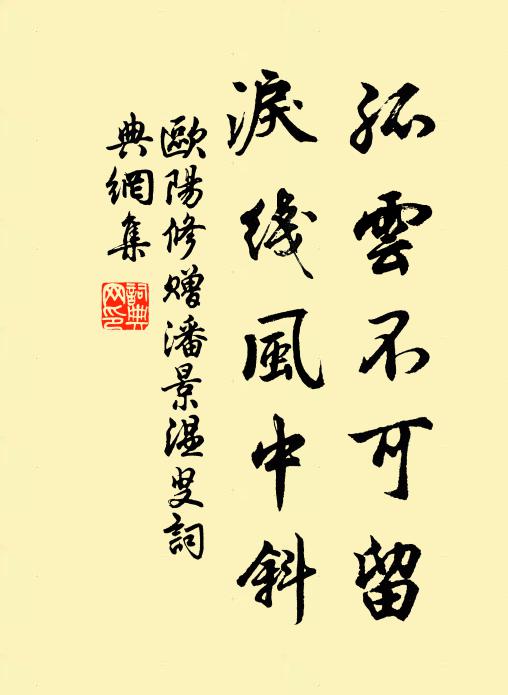 孤雲不可留
淚綫風中斜
歐陽修贈潘景温叟詞
典網集
詞典
网印